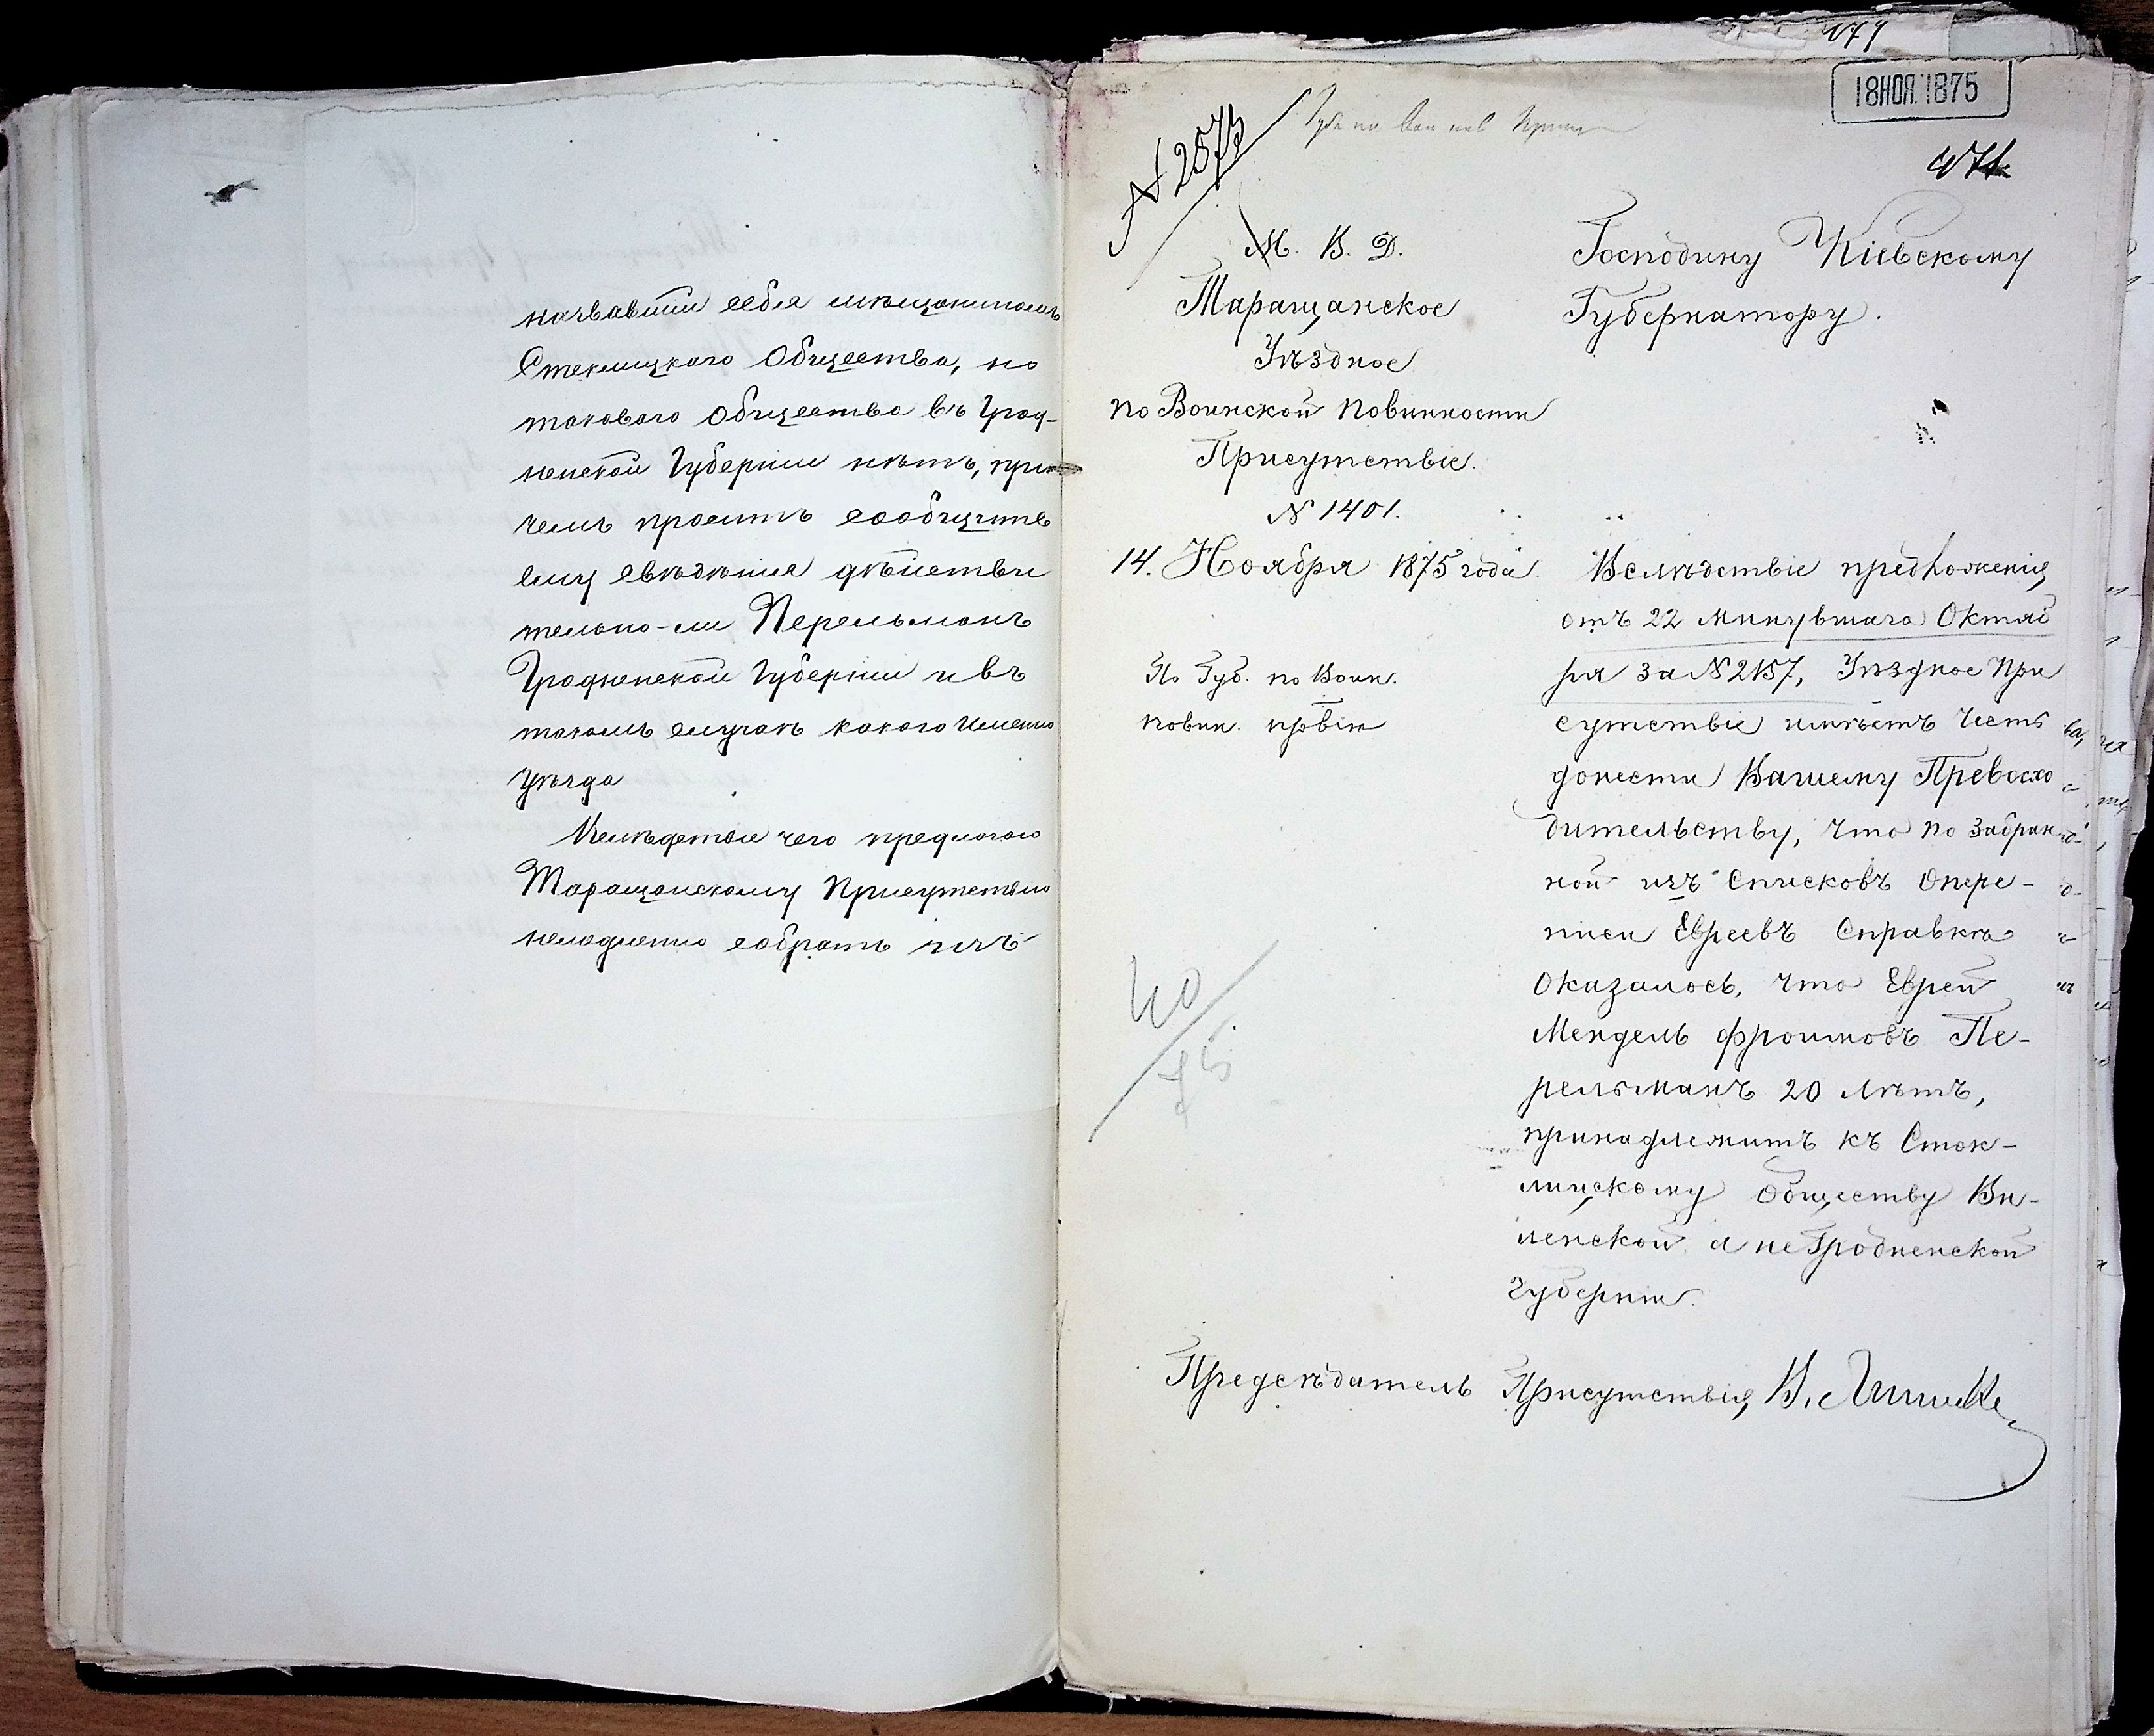 назвавшій себя мѣщаниномъ
Стеклицкаго Общества, но
таковаго общества въ Грод-
ненской Губерніи нѣтъ, при
чемъ проситъ сообщить
ему свѣдѣнія дѣйстви
тельно-ли Перельманъ
Гродненской Губерніи и въ
такомъ случаѣ какого именно
уѣзда
Вслѣдствіе чего предлагаю
Таращанскому Присутствію
немедленно собрать изъ
179
18 НОЯ 1875
N 2575
471
М. В. Д.
Таращанское
Уѣздное
по Воинской повинности
Присутствіе.
N 1401.
14. Ноября 1875 года.
По Губ. по Воин.
повин.
40
75
Господину Кіевскому
Губернатору.
Вслѣдствіе предложенія
отъ 22 минувшаго Октяб
ря за N 2157, Уѣздное При
сутствіе имѣетъ честь
донести Вашему Превосхо
дительству, что по забран
ной изъ списковъ опере-
писи Евреевъ справкѣ
оказалось, что Еврей
Мендель Фроимовъ Пе-
рельманъ 20 лѣтъ,
принадлежитъ къ Сток-
лицкому обществу Ви-
ленской а не Гродненской
губерніи.
Предсѣдатель Присутствія В.